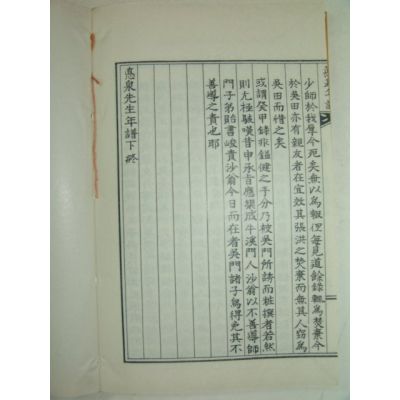 少師於我尊今死矣無以爲報但每見道餘錄輒爲焚棄今
於吳田亦有親友者在宜效其張洪之焚棄而無其人窃爲
吳田而惜之矣
或謂癸甲錄非鎰健之手分乃被吳門所誘而粧撰者若然
則尤極駭嘆昔申承旨應榘成牛溪門人沙翁以不善導師
門子弟貽書峻責沙翁今日而在者吳門諸子烏得免其不
善導之責也耶
悳泉先生年譜下終